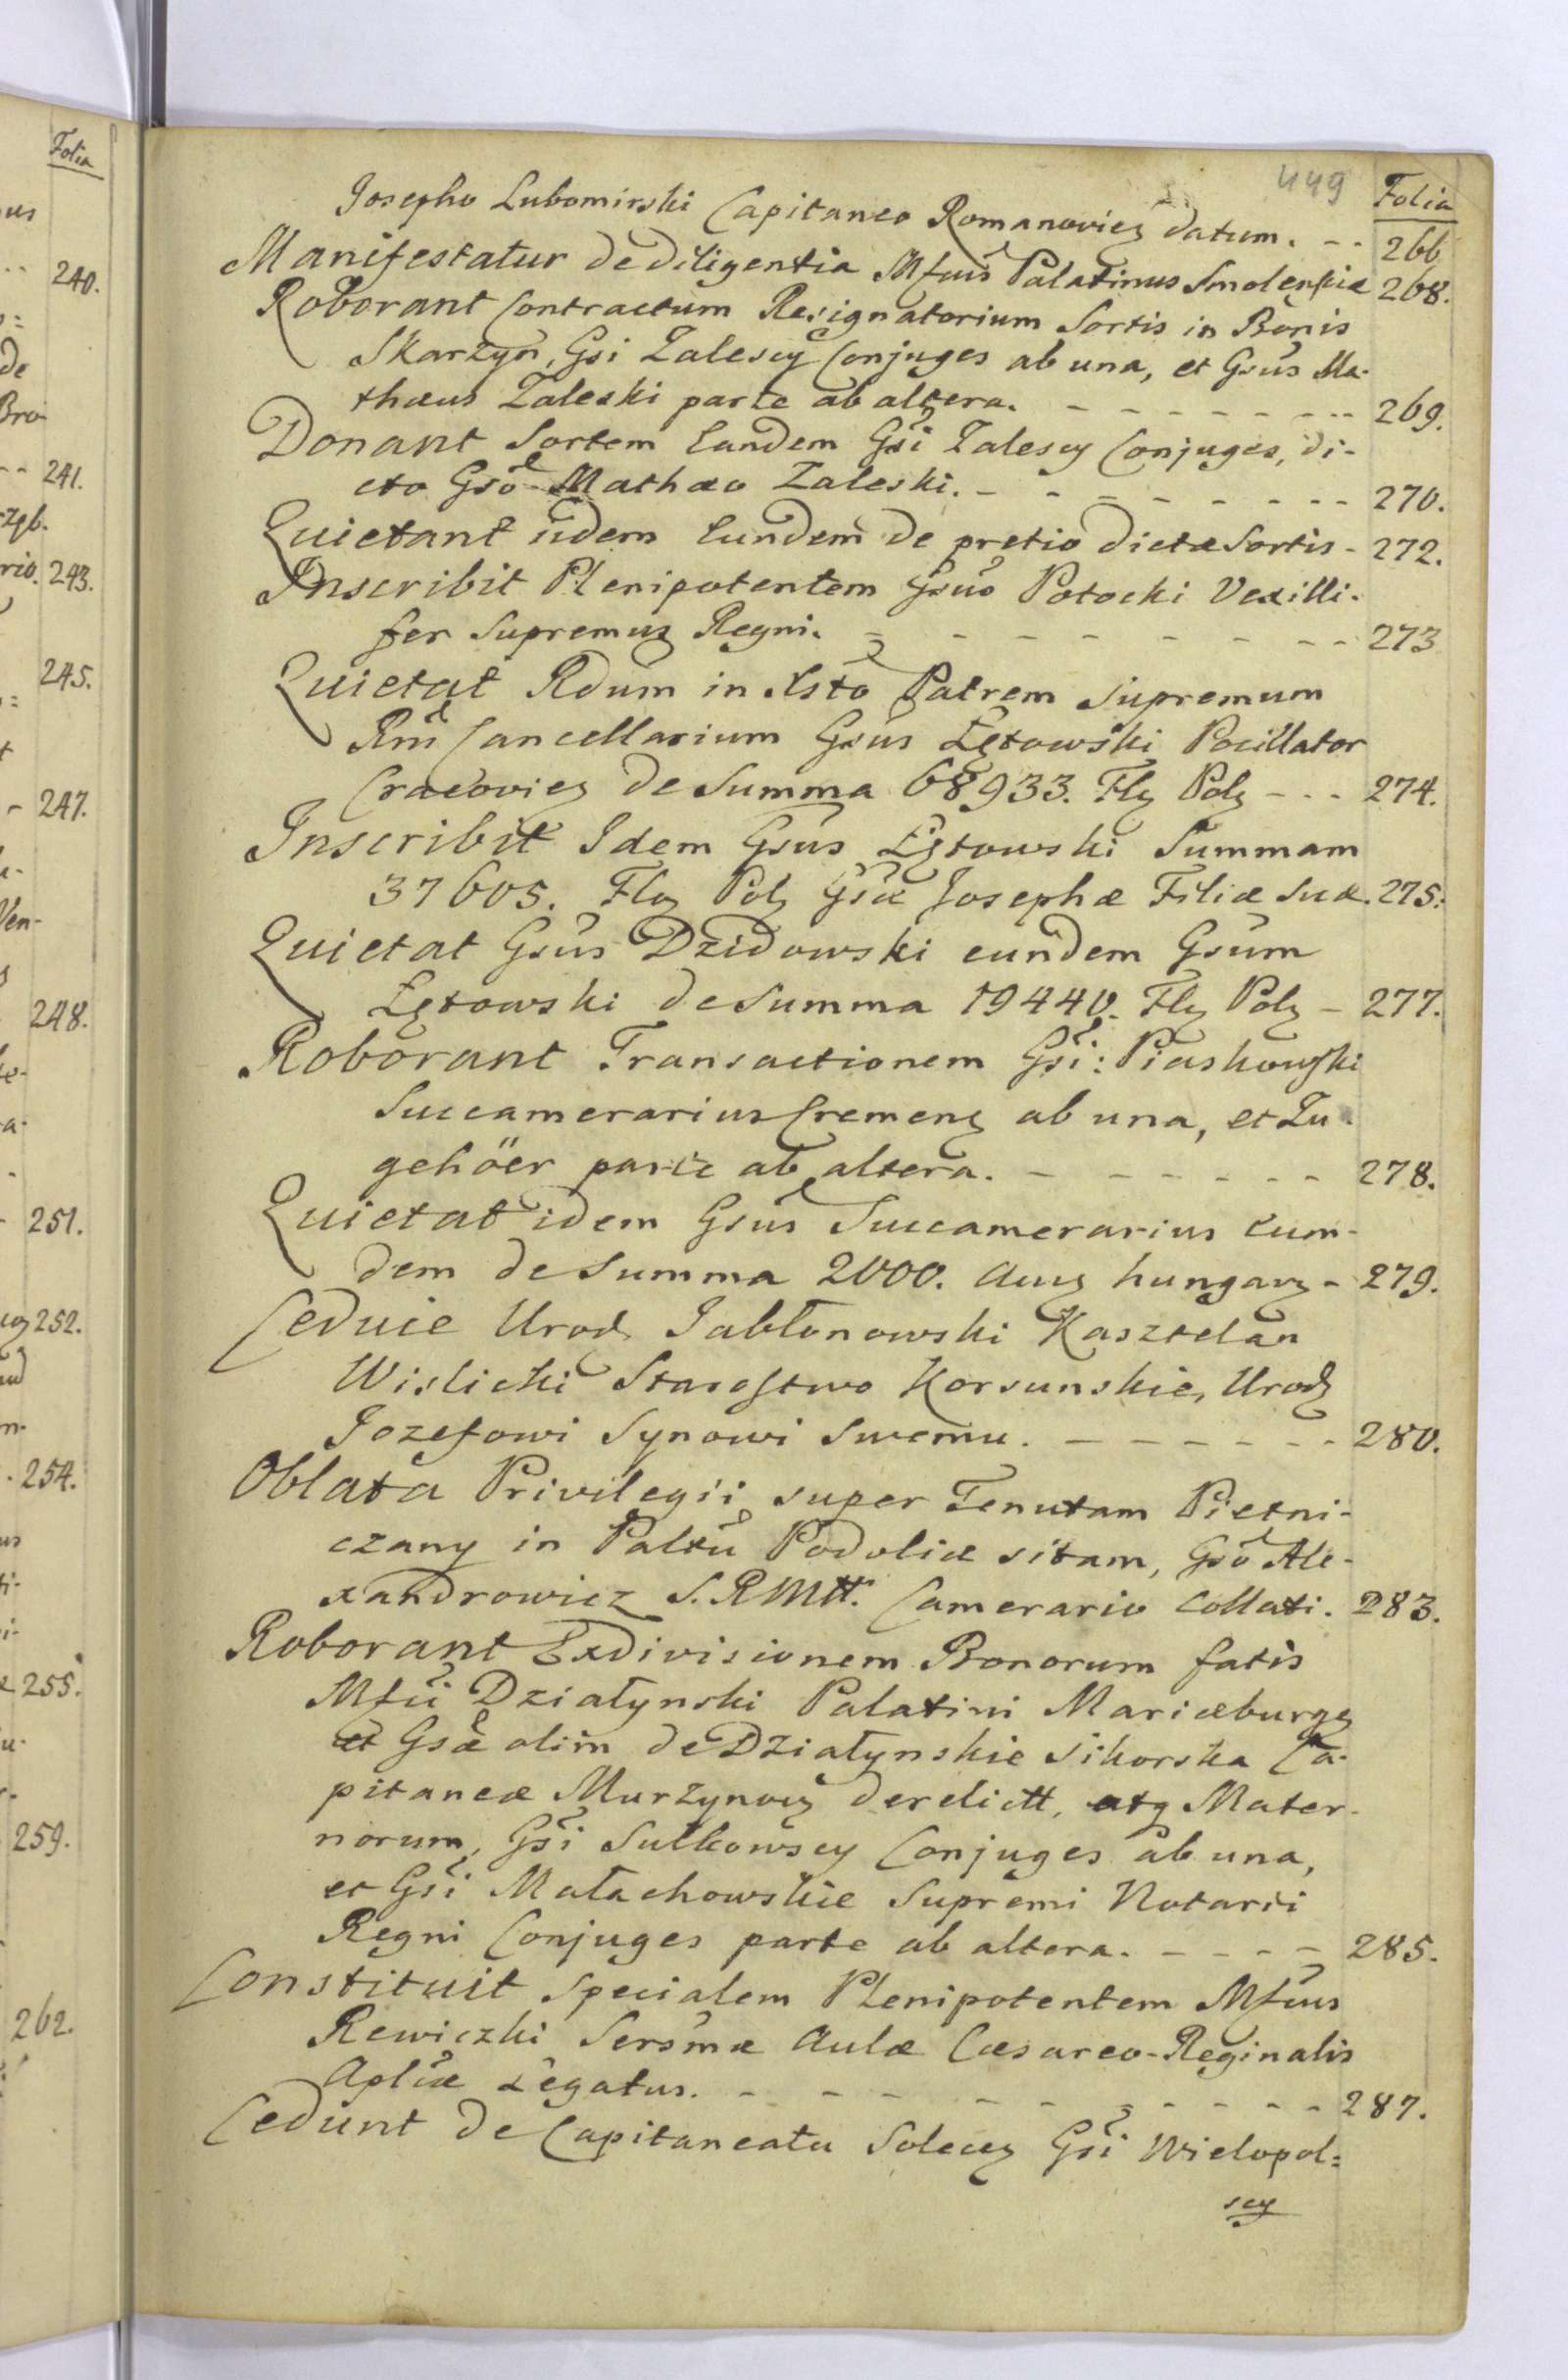 449 Folia
Josepho Lubomirski Capitaneo Romanovieȝ datum. -- 266.
Manifestatur de diligentia Mfcus Palatinus Smolenſciæ 268.
Roborant Contractum Resignatorium Sortis in Bonis
Skarzyn, Gsi Zalescy Conjuges ab una, et Gsus Ma-
thæus Zaleski parte ab altera. - - - - - - - - 269.
Donant Sortem Eandem Gsi Zalescy Conjuges, di-
cto Gso Mathæo Zaleski. - - - - - - - - - 270.
Quietant iidem Eundem de pretio dictæ Sortis - 272.
Inscribit Plenipotentem Gsus Potocki Vexilli-
fer Supremus Regni. - - - - - - - - - 273
Quietat Rdum in Xsto Patrem Supremum
Rni Cancellarium Gsus Łętowski Pocillator
Cracovieȝ de Summa 68933. Flȝ Polȝ - - - 274.
Inscribit Idem Gsus Łętowski Summam
37605. Flȝ Polȝ Gsæ Josephæ Filiæ Suæ. 275.
Quietat Gsus Dzidowski eundem Gsum
Łętowski de Summa 19440. Flȝ Polȝ - 277.
Roborant Transactionem Gsi: Piaskowſki
Succamerarius Cremenȝ ab una, et Zu-
gehöer parte ab altera. - - - - - - - 278.
Quietat idem Gsus Succamerarius Eum-
dem de Summa 2000. Aurȝ hungarȝ - 279.
Ceduie Urodȝ Jabłonowski Kasztelan
Wislicki Staroſtwo Korsunskie, Urodȝ
Jozefowi Synowi Swemu. - - - - - - - 280.
Oblata Privilegii super Tenutam Pietni-
czany in Paltu Podoliæ sitam, Gso Ale-
xandrowicz S. R Mtt. Camerario Collati. 283.
Roborant Exdivisionem Bonorum fatis
Mfci Działynski Palatini Mariæburgȝ
et Gsæ olim de Działynskie Sikorska Ca-
pitaneæ Murzynovȝ derelictt, atq Mater-
norum, Gsi Sułkowscy Conjuges ab una,
et Gsi Małachowskie Supremi Notarii
Regni Conjuges parte ab altera. - - - - 285.
Constituit Specialem Plenipotentem Mfcus
Rewiczki Sersmæ Aulæ Cæsareo-Reginalis
Aplicæ Legatus. - - - - - - - - - 287.
Cedunt de Capitaneatu Solecȝ Gsi Wielopol=
scy
Folia
us
240.
de
Bro-
-- 241.
rio. 243.
245.
- 247.
Ven-
248.
251.
252.
254.
255.
259.
262.